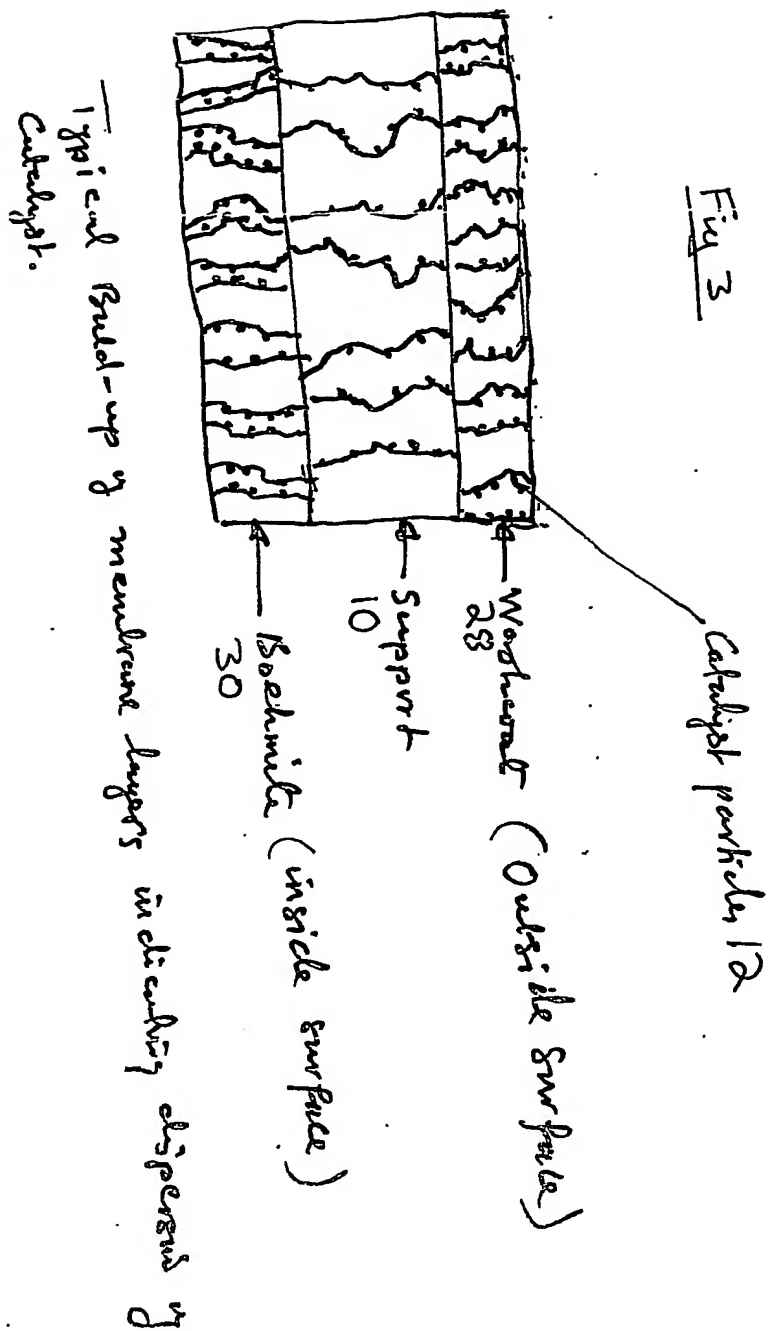 Fig 3
Catalyst particles 12
Washcoat (Outside surface)
28
Support
10
Boehmite (inside surface)
30
Typical Build-up of membrane layers indicating dispersion of
Catalyst.